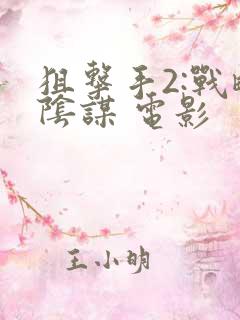 狙擊手2:戰
陰謀 電影
王小明